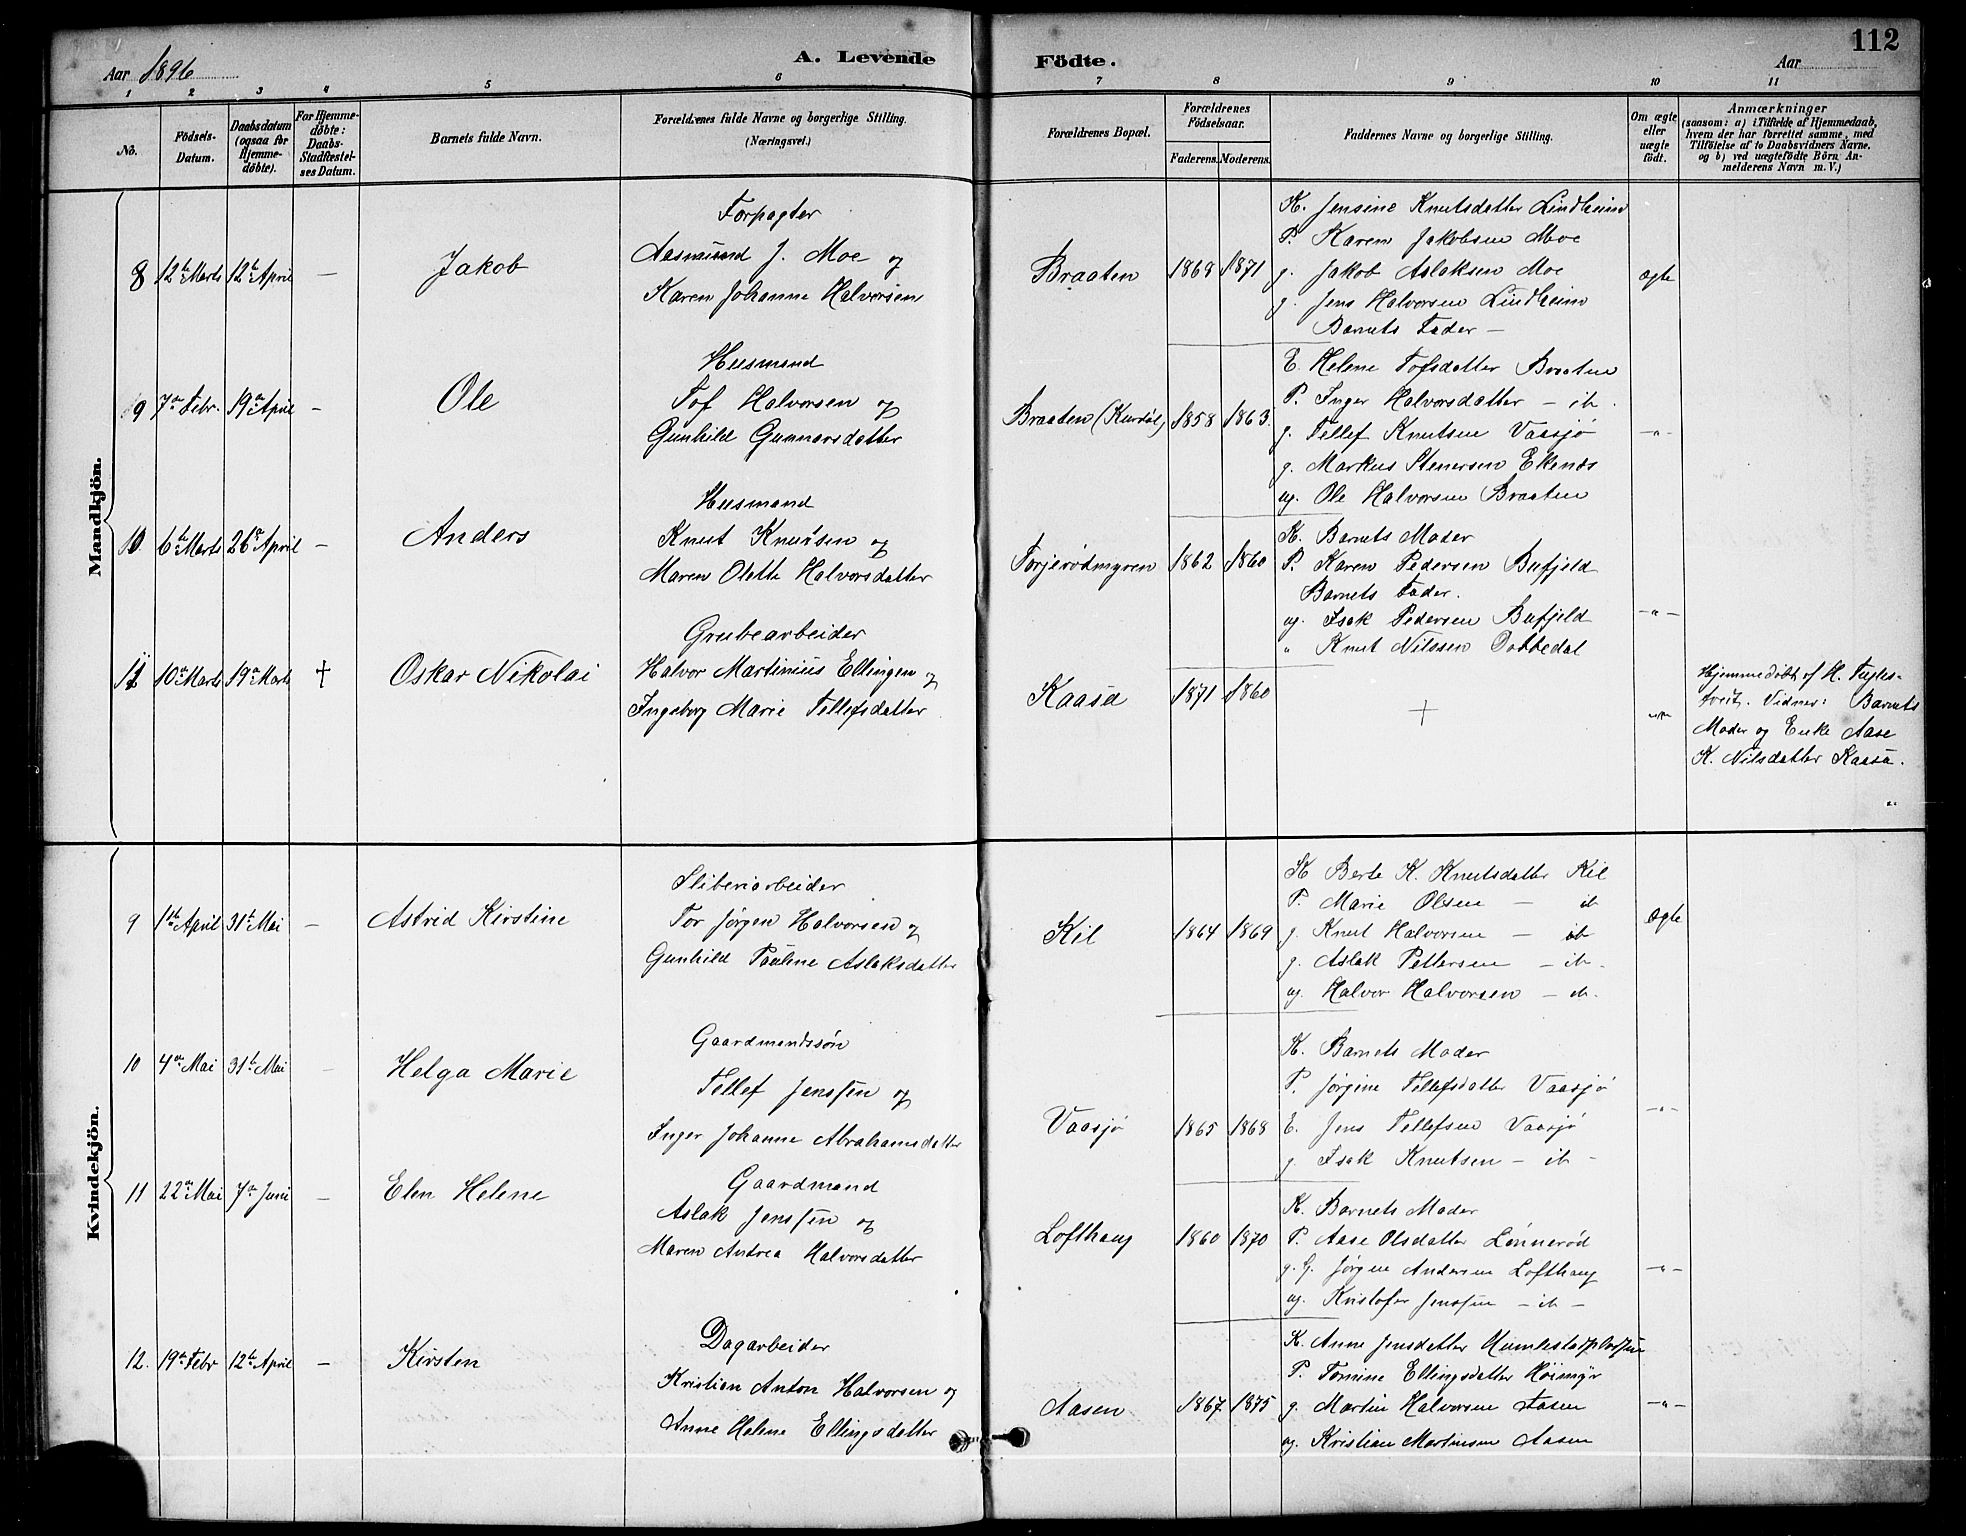 112
Aar 1896
A. Levende Födte.
Aar
1 2 3 4 5 6 7 8 9 10 11
No.
Födsels-Datum.
Daabsdatum (ogsaa for Hjemme-döbte).
For Hjemme-döbte: Daabs-Stadfæstel-ses Datum.
Barnets fulde Navn.
Forældrenes fulde Navne og borgerlige Stilling. (Næringsvei.)
Forældrenes Bopæl.
Forældrenes Födselsaar.
Faderens. Moderens.
Faddernes Navne og borgerlige Stilling.
Om ægte eller uægte födt.
Anmærkninger
(saasom: a) i Tilfælde af Hjemmedaab, hvem der har forrettet samme, med Tilföielse af to Daabsvidners Navne. og b) ved uægtefödte Börn Anmelderens Navn m. V.)
Mandkjön.
8 12te Marts 12te April — Jakob
Forpagter
Aasmund J. Moe og
Karen Johanne Halvorsen
Braaten 1869 1871
K. Jensine Knutsdatter Lindheim
P. Karen Jakobsen Moe
g. Jakob Aslaksen Moe
g. Jens Halvorsen Lindheim
Barnets Fader —
ægte
9 7de Febr. 19de April — Ole
Husmand
Tof Halvorsen og
Gunhild Gunnarsdatter
Braaten 1858 1863.
E. Helene Tofsdatter Braaten
P. Inger Halvorsdatter — ib.
g. Tellef Knutsen Vaasjø
g. Markus Stenersen Ekenæs
ug. Ole Halvorsen Braaten
—"—
10 6te Marts 26de April — Anders
Husmand
Knut Knutsen og
Maren Olette Halvorsdatter
Torjerødmyren 1862 1860
K. Barnets Moder
P. Karen Pedersen Bufjeld
Barnets Fader.
ug. Isak Pedersen Bufjeld
" Knut Nilssen Dobbedal
—"—
11 10de Marts 19de Marts † Oskar Nikolai
Grubearbeider
Halvor Martinius Ellingen og
Ingeborg Marie Tellefsdatter
Kaasa 1871 1860
†
—"—
Hjemmedøbt af H. Fugles-
tveit. Vidner: Barnets
Moder og Enke Aase
K. Nilsdatter Kaasa.
"
Kvindekjön.
9 1ste April 31te Mai — Astrid Kirstine
Sliberiarbeider
Tor Jørgen Halvorsen og
Gunhild Pauline Aslaksdatter
Kil 1864 1869
K Berte K. Knutsdatter Kil
P. Marie Olsen — ib
g. Knut Halvorsen — ib
g. Aslak Pettersen — ib.
ug. Halvor Halvorsen — ib.
ægte
10 4de Mai 31te Mai — Helga Marie
Gaardmandssøn
Tellef Jenssen og
Inger Johanne Abrahamsdatter
Vaasjø 1865 1868
K. Barnets Moder
P. Jørgine Tellefsdatter Vaasjø
E. Jens Tellefsen Vaasjø
g. Isak Knutsen — ib —
—"—
11 22de Mai 7de Juni — Elen Helene
Gaardmand
Aslak Jenssen og
Maren Andrea Halvorsdatter
Lofthaug 1860 1870
K. Barnets Moder
P. Aase Olsdatter Lønnerød
g. G. Jørgen Andersen Lofthaug
ug. Kristofer Jenssen — ib —
—"—
12. 19de Febr 12te April — Kirsten
Dagarbeider
Kristian Anton Halvorsen og
Anne Helene Ellingsdatter
Aasen 1867 1875
K. Anne Jensdatter
P. Tomine Ellingsdatter Høimyr
g. Martin Halvorsen Aasen
ug. Kristian Martinsen Aasen
—"—